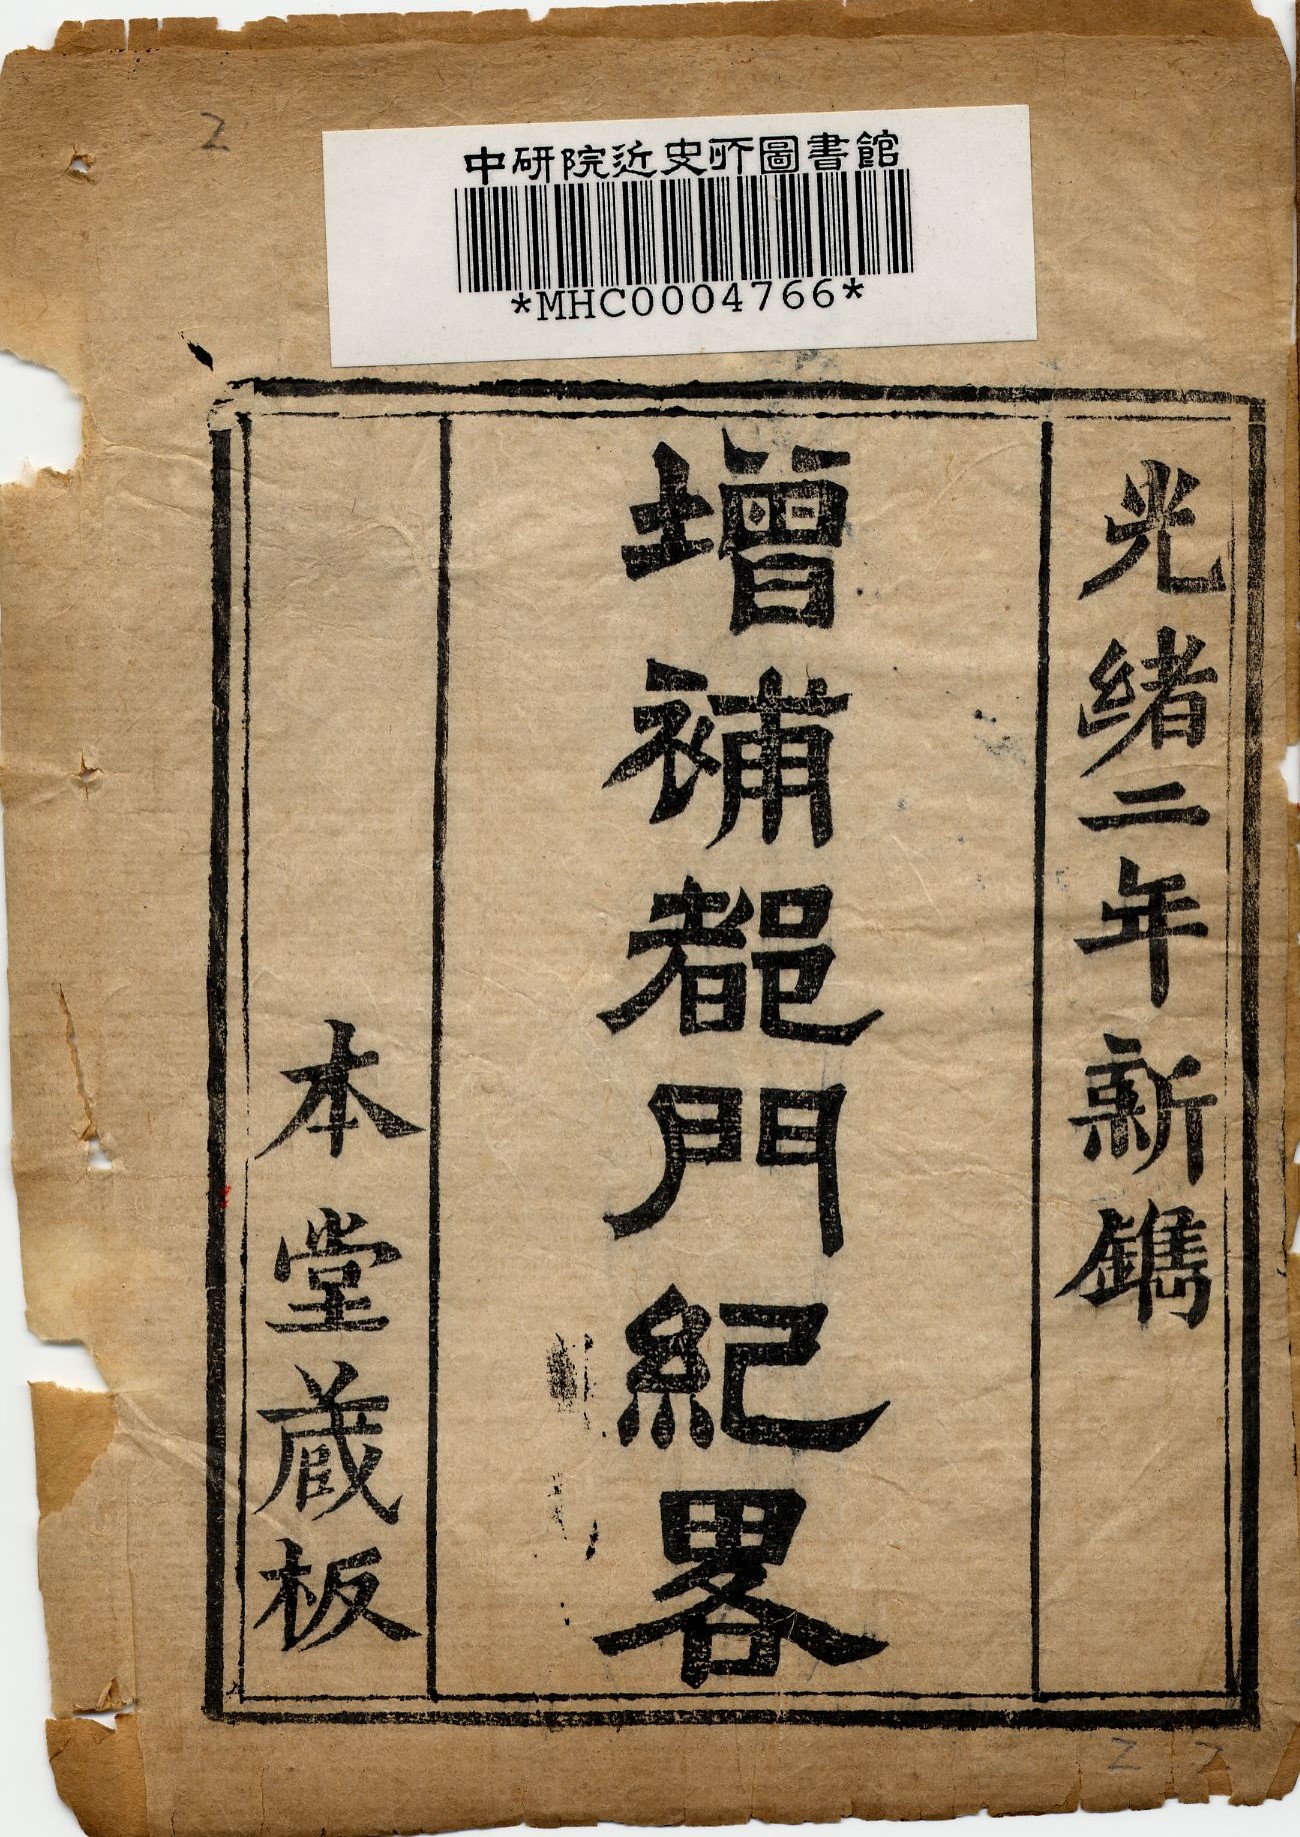 中研院近史所圖書館
*MHC0004766*
光緒二年新鐫
增補都門紀畧
本堂藏板